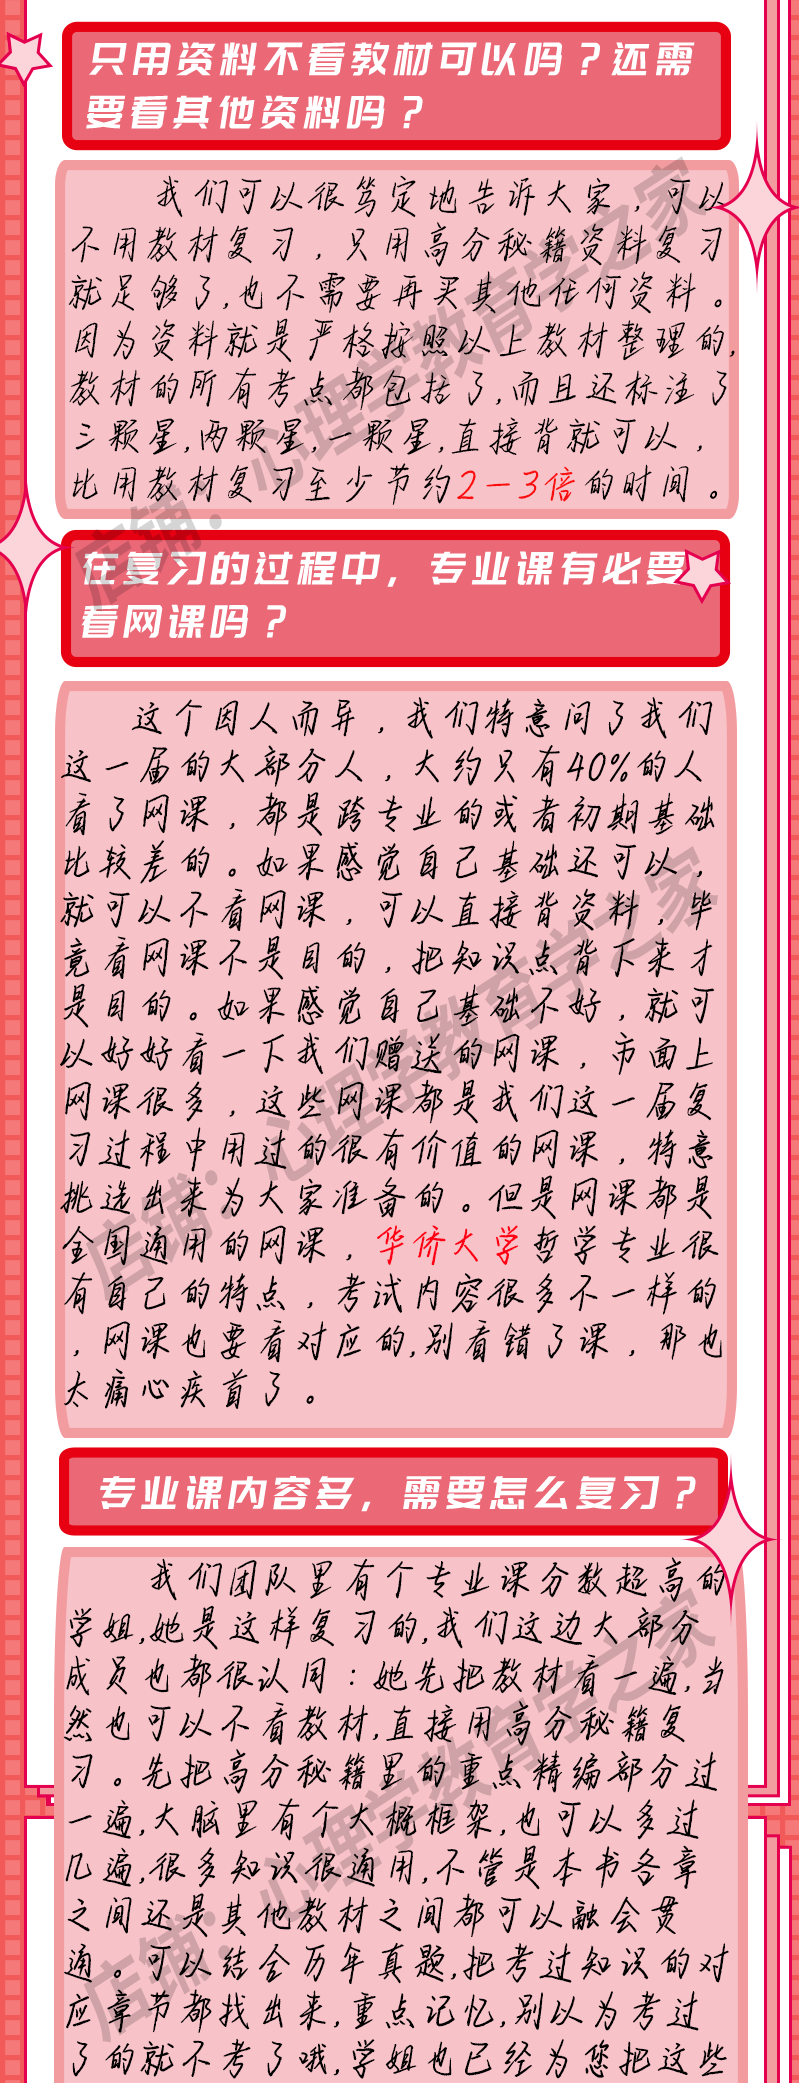 只用资料不看教材可以吗？还需
要看其他资料吗？
我们可以很笃定地告诉大家，可以
不用教材复习，只用高分秘籍资料复习
就足够了,也不需要再买其他任何资料。
因为资料就是严格按照以上教材整理的,
教材的所有考点都包括了,而且还标注了
三颗星,两颗星,一颗星,直接背就可以，
比用教材复习至少节约2－3倍的时间。
在复习的过程中，专业课有必要
看网课吗？
这个因人而异，我们特意问了我们
这一届的大部分人，大约只有40%的人
看了网课，都是跨专业的或者初期基础
比较差的。如果感觉自己基础还可以，
就可以不看网课，可以直接背资料，毕
竟看网课不是目的，把知识点背下来才
是目的。如果感觉自己基础不好，就可
以好好看一下我们赠送的网课，市面上
网课很多，这些网课都是我们这一届复
习过程中用过的很有价值的网课，特意
挑选出来为大家准备的。但是网课都是
全国通用的网课，华侨大学哲学专业很
有自己的特点，考试内容很多不一样的
，网课也要看对应的,别看错了课，那也
太痛心疾首了。
专业课内容多，需要怎么复习？
我们团队里有个专业课分数超高的
学姐,她是这样复习的,我们这边大部分
成员也都很认同：她先把教材看一遍,当
然也可以不看教材,直接用高分秘籍复
习。先把高分秘籍里的重点精编部分过
一遍,大脑里有个大概框架,也可以多过
几遍,很多知识很通用,不管是本书各章
之间还是其他教材之间都可以融会贯
通。可以结合历年真题,把考过知识的对
应章节都找出来,重点记忆,别以为考过
了的就不考了哦,学姐也已经为您把这些
店铺：心理学教育学之家
店铺：心理学教育学之家
店铺：心理学教育学之家